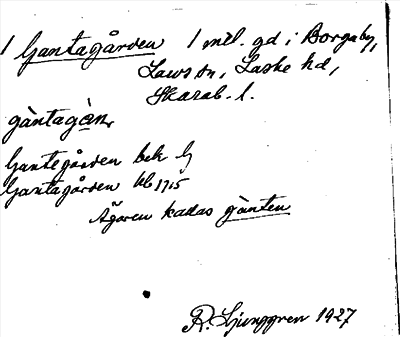 1 Gantagården 1 mtl. gd i Borgaby,
Laws sn, Laske hd,
Skarab. l.
gàntagàn
Gantegården bek
Gantagården kb 1715
Ägaren kallas gànten
R. Ljunggren 1927